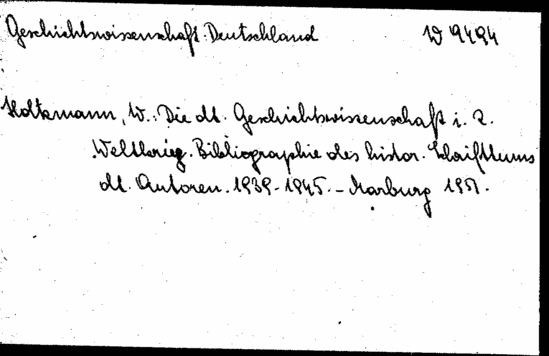 Geschichtswissenschaft. Deutschland W 9494
Holtzmann, W.: Die dt. Geschichtswissenschaft i. 2.
Weltkrieg. Bibliographie des histor. Schrifttums
dt. Autoren. 1939-1945. - Marburg 1951.